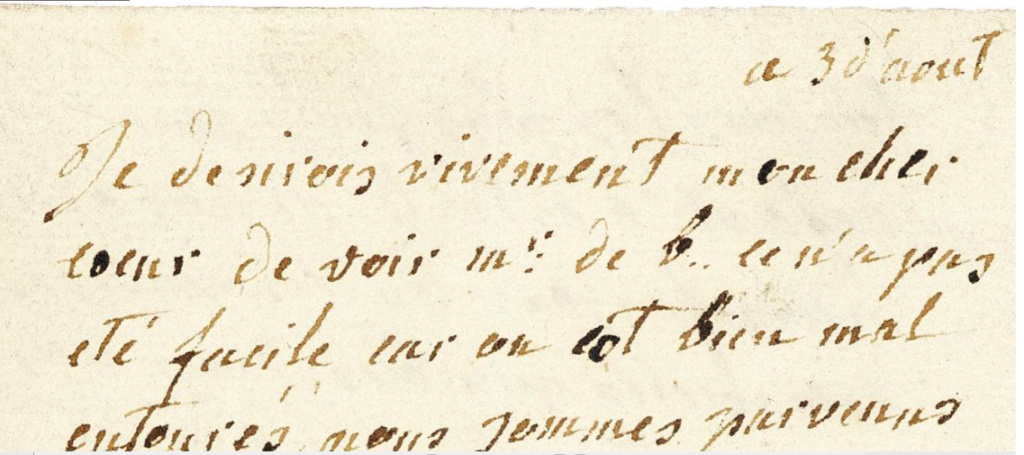 a 3 d'aout
Je desirois vivement mon cher
coeur de voir mr. de b.. ce n'a pas
eté facile car on est bien mal
entourés, nous sommes parvenus